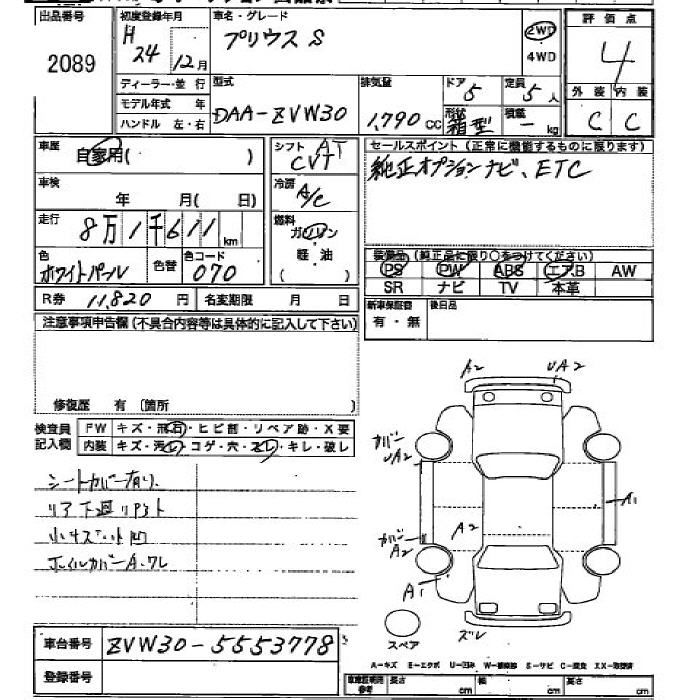 出品番号
2089
初度登録年月
H 24年 12月
車名・グレード
プリウス S
2WD
4WD
評価点
4
外装 内装
C C
ディーラー・並行
モデル年式 年
ハンドル 左・右
型式
DAA-ZVW30
排気量
1,790 cc
ドア
5
形状
箱型
定員
5人
積載
- kg
車歴
自家用( )
車検
年 月( 日)
走行
8万1千611km
色
ホワイトパール
色替
色コード
070
R券 11,820 円
名変期限 月 日
シフト AT
CVT
冷房
A/C
燃料
ガソリン
軽油
( )
セールスポイント(正常に機能するものに限ります)
純正オプションナビ、ETC
装備品(純正品に限り○をつけてください)
PS PW ABS エアB AW
SR ナビ TV 本革
新車保証書
有・無
後日品
注意事項申告欄(不具合内容等は具体的に記入して下さい)
修復歴 有 〔箇所 〕
検査員
記入欄
FW キズ・飛石・ヒビ割・リペア跡・X要
内装 キズ・汚レ・コゲ・穴・スレ・キレ・破レ
シートカバー有り、
リア下廻りサビ
小キズ
凹
ホイルカバーA.ワレ
A2
UA2
カバー
UA2
A1
A2
カバー
A2
A1
ズレ
スペア
A-キズ E-エクボ U-凹み W-補修跡 S-サビ C-腐食 XX-交換済
車台番号 ZVW30-5553778
登録番号
車庫証明用
参考
長さ cm
幅 cm
高さ cm